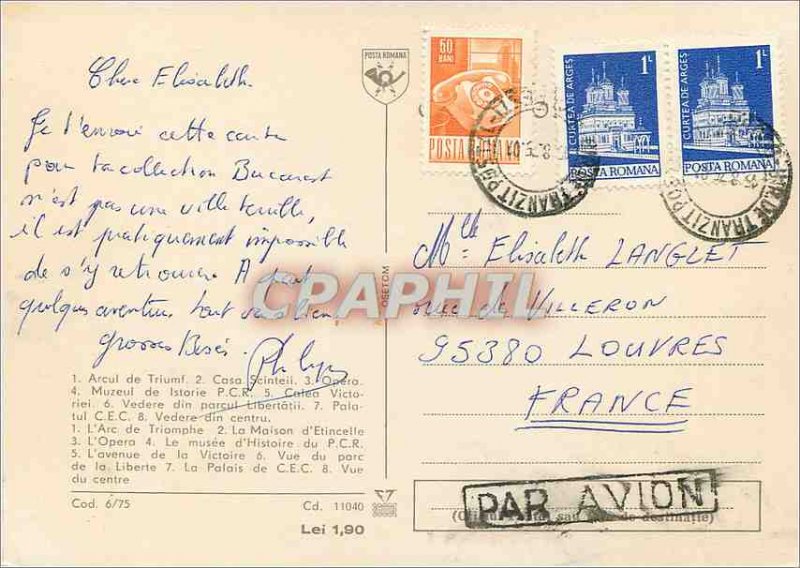 POSTA ROMANA
Chère Elisabeth
Je t'envoie cette carte
pour ta collection Bucarest
n'est pas une ville
il est pratiquement impossible
de s'y retrouver. A part
quelques aventures tout va bien
Grosses Bises.
1. Arcul de Triumf. 2. Casa Scinteii. 3. Opera.
4. Muzeul de Istorie P.C.R. 5. Calea Victo-
riei. 6. Vedere din parcul Libertății. 7. Pala-
tul C.E.C. 8. Vedere din centru.
1. L'Arc de Triomphe 2. La Maison d'Etincelle
3. L'Opera 4. Le musée d'Histoire du P.C.R.
5. L'avenue de la Victoire 6. Vue du parc
de la Liberte 7. La Palais de C.E.C. 8. Vue
du centre
Cod. 6/75 Cd. 11040
Lei 1,90
OSETCM
CPARPHIL
60
BANI
POSTA
1L
CURTEA DE ARGEȘ
POSTA ROMANA
1L
CURTEA DE ARGEȘ
POSTA ROMANA
DE TRANZIT
DE TRANZIT
Mlle Elisabeth LANGLET
rue de VILLERON
95380 LOUVRES
FRANCE
PAR AVION
de destinație)